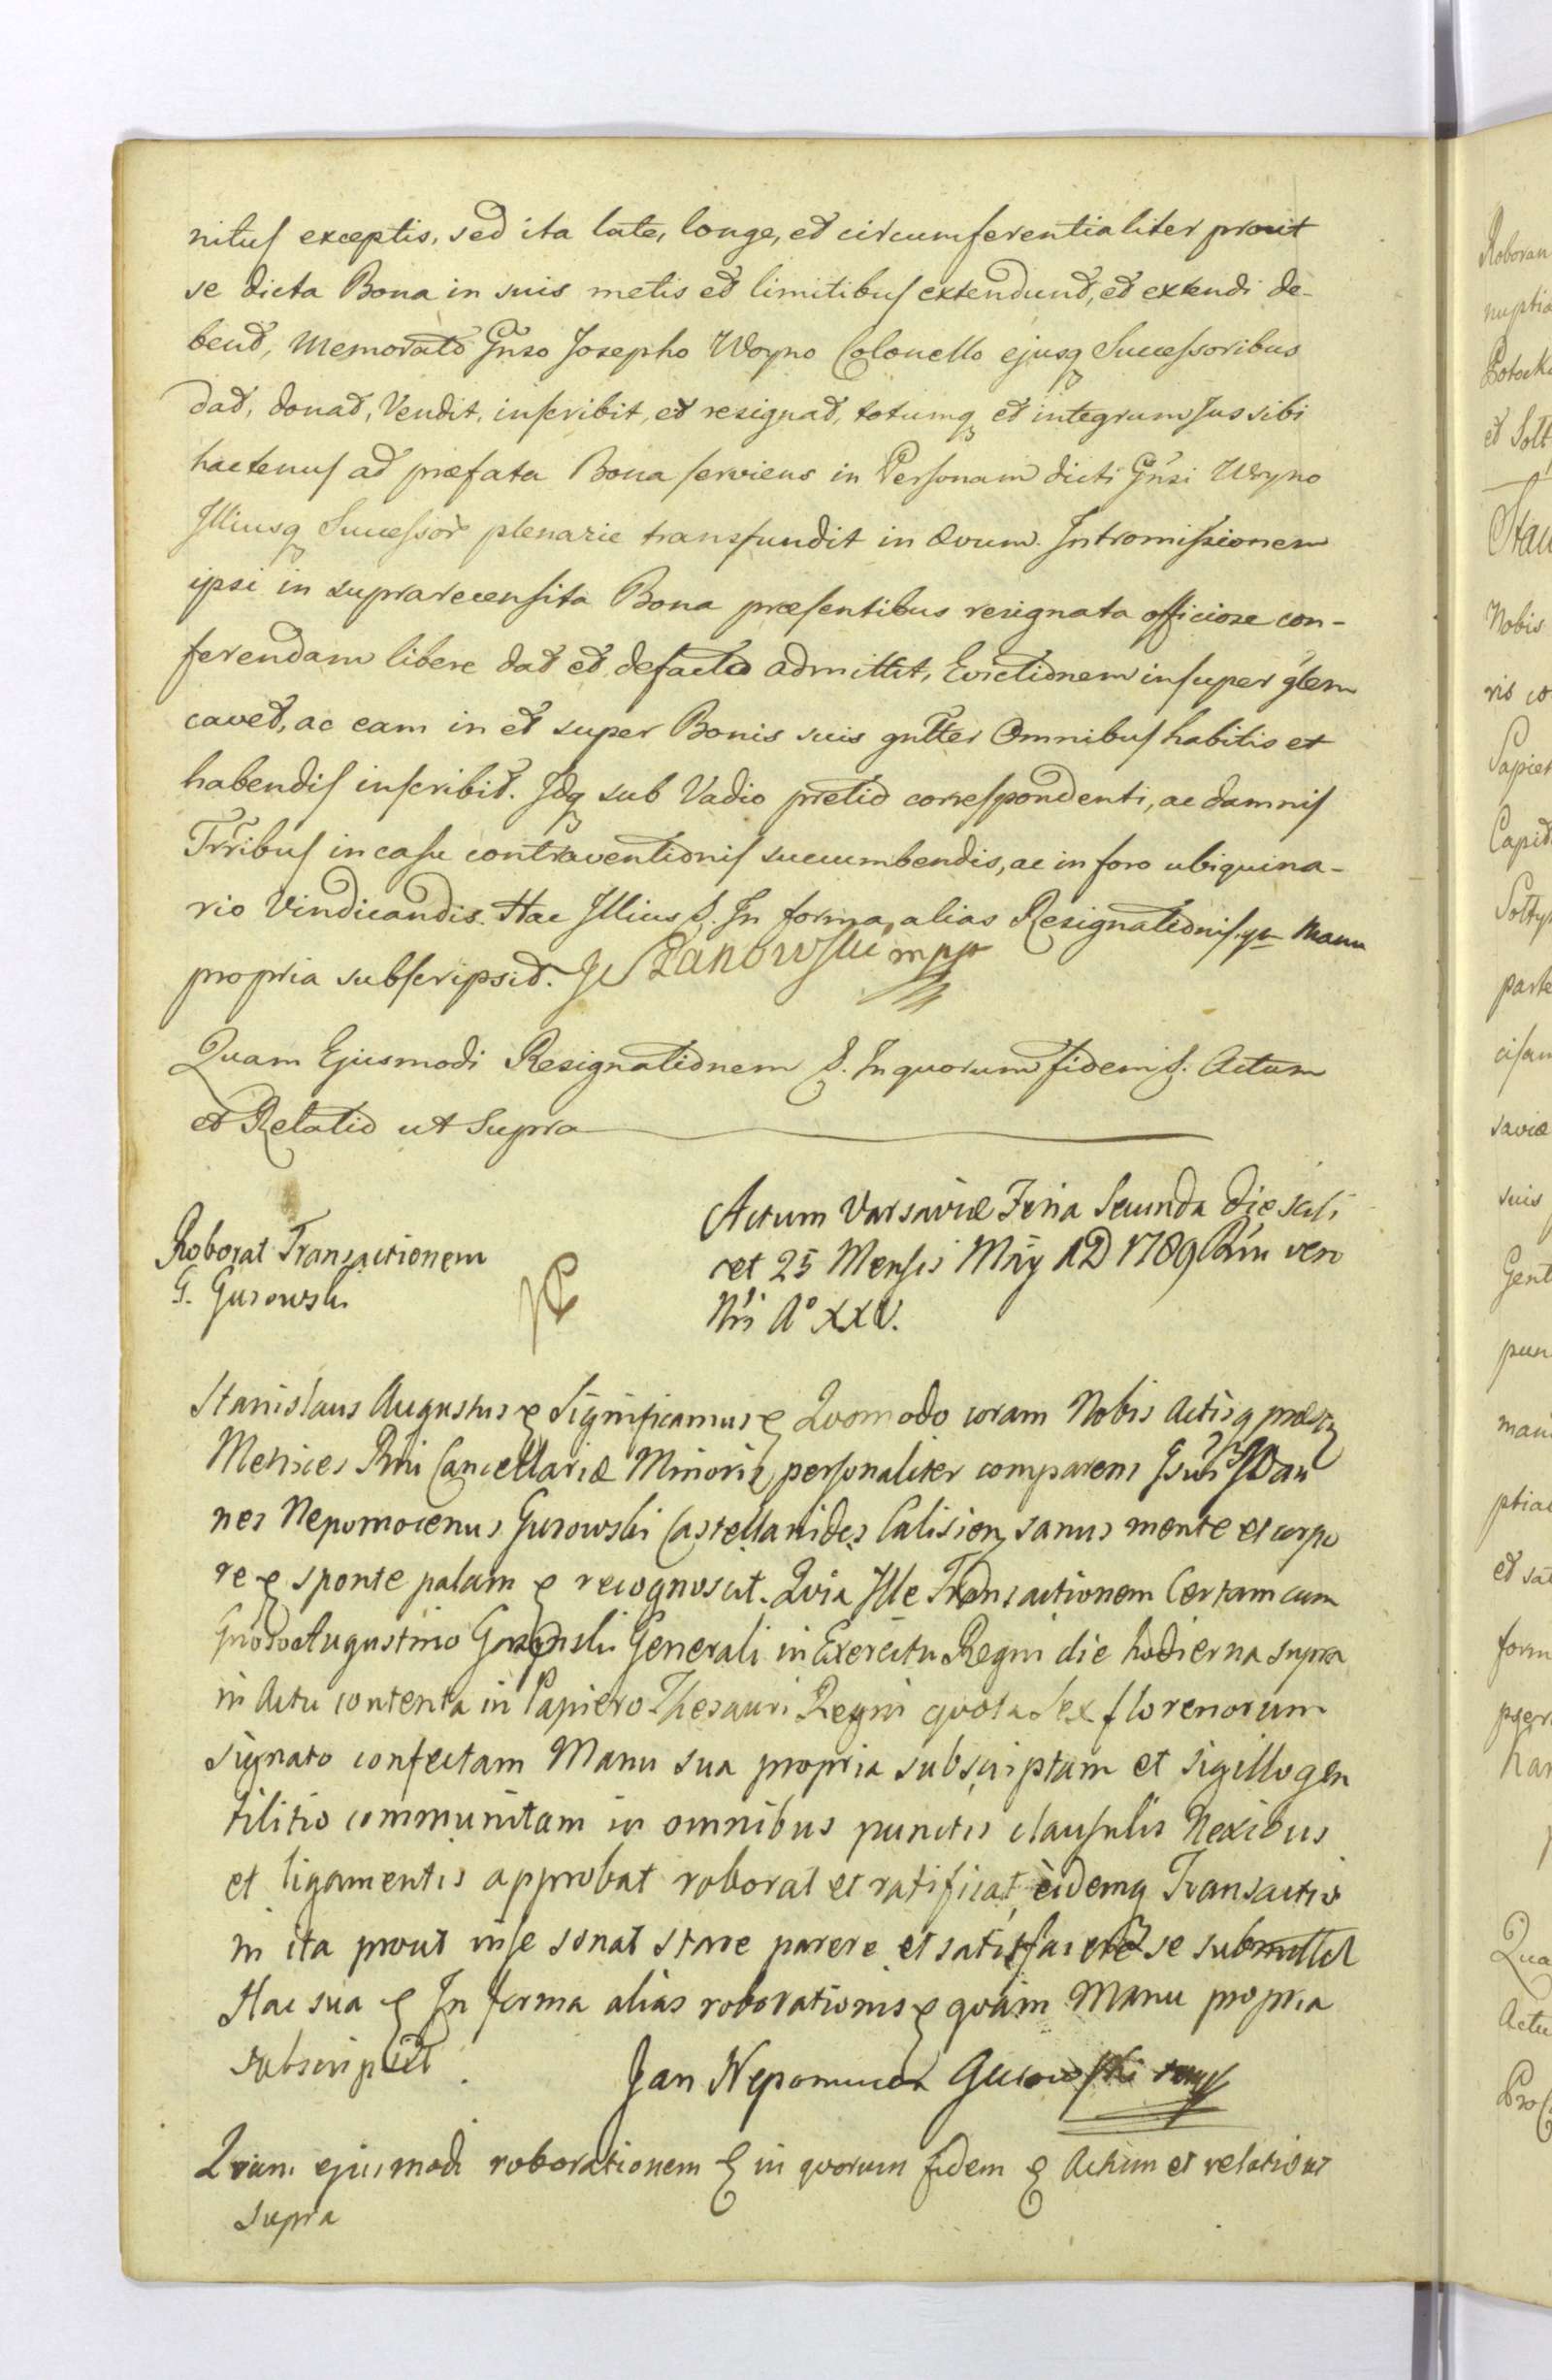 nitus exceptis, sed ita late, longe, et circumferentialiter prout
se dicta Bona in suis metis et limitibus extendunt, et extendi de-
bent, Memorato Gnso Josepho Woyno Colonello ejusq Successoribus
dat, donat, Vendit, inscribit, et resignat, totumq et integrum Jus sibi
hactenus ad præfata Bona serviens in Personam dicti Gnsi Woyno
Illiusq Successor plenarie transfundit in ævum. Intromissionem
ipsi in suprarecensita Bona præsentibus resignata officiose con-
ferendam libere dat et defacto admittit, Evictionem insuper glem
cavet, ac eam in et super Bonis suis gntter Omnibus habitis et
habendis inscribit. Idq sub Vadio pretio correspondenti, ac damnis
Trribus in casu contraventionis succumbendis, ac in foro ubiquina-
rio Vindicandis. Hac Illius &. In forma, alias Resignationis. qu Manu
propria subscripsit. J Łanowski mpp
Quam Ejusmodi Resignationem &. In quorum fidem &. Actum
et Relatio ut Supra
Roborat Transactionem
G. Gurowski
Actum Varsaviæ Feria Secunda die scili
cet 25 Mensis Maij AD 1789 Rni vero
Nri Aº XXV.
Stanislaus Augustus & Significamus & Quomodo coram Nobis Actisq præs
Metrices Rni Cancellariæ Minoris personaliter comparens Gnsus Joan
nes Nepomocenus Gurowski Castellanides Calisien sanus mente et corpo
re & sponte palam & recognoscit. Quia Ille Transactionem Certam cum
Gnoso Augustino Gorzenski Generali in Exercitu Regni die hodierna supra
in Actu contenta in Papiero Thesauri Regni quota Sex florenorum
signato confectam Manu sua propria subscriptam et sigillo gen
tilitio communitam in omnibus punctis clausulis Nexibus
et ligamentis approbat roborat et ratificat, eidemq Transactio
ni ita prout in se sonat stare parere et satisfacere se submittet
Hac sua & In forma alias roborationis & quam Manu propria
subscripsit. Jan Nepomucen Gurowski mpp
Quam ejusmodi roborationem & in quorum fidem & Actum et relatio ut
supra
Roboran
nuptia
Potock
et Sołt
Stan
Nobis
ris co
Sapieh
Capit
Sołty
parte
cisam
saviæ
suis
Gent
pun
man
ptial
et sat
form
Qua
Actu